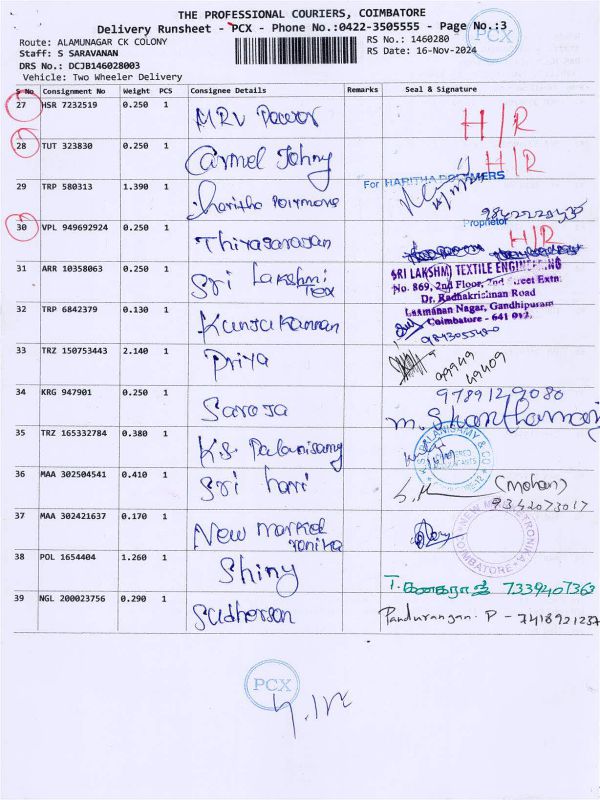 THE PROFESSIONAL COURIERS, COIMBATORE
Delivery Runsheet - PCX - Phone No.:0422-3505555 - Page No.:3
Route: ALAMUNAGAR CK COLONY
RS No.: 1460280
PCX
Staff: S SARAVANAN
RS Date: 16-Nov-2024
DRS No.: DCJB146028003
Vehicle: Two Wheeler Delivery
S No Consignment No Weight PCS Consignee Details Remarks Seal & Signature
27 HSR 7232519 0.250 1 MRV Power H/R
28 TUT 323830 0.250 1 Carmel Johny H/R
29 TRP 580313 1.390 1 haritha polymers For HARITHA POLYMERS
Proprietor
30 VPL 949692924 0.250 1 Thiyagarajan H/R
31 ARR 10358063 0.250 1 Sri Lakshmi Tex
SRI LAKSHMI TEXTILE ENGINEERING
No. 869, 2nd Floor, 2nd Street Extn.
Dr. Radhakrishnan Road
Laxmanan Nagar, Gandhipuram
Coimbatore - 641 012.
32 TRP 6842379 0.130 1
33 TRZ 150753443 2.140 1 Priya
34 KRG 947901 0.250 1 Saroja 9789129080
35 TRZ 165332784 0.380 1 K.S. Palanisamy
36 MAA 302504541 0.410 1 Sri hari (Mohan)
9342073017
37 MAA 302421637 0.170 1 New Market
38 POL 1654404 1.260 1 Shiny T. கனகராஜ் 7339407363
39 NGL 200023756 0.290 1 Sudherson Pandurangan. P - 7418921237
PCX